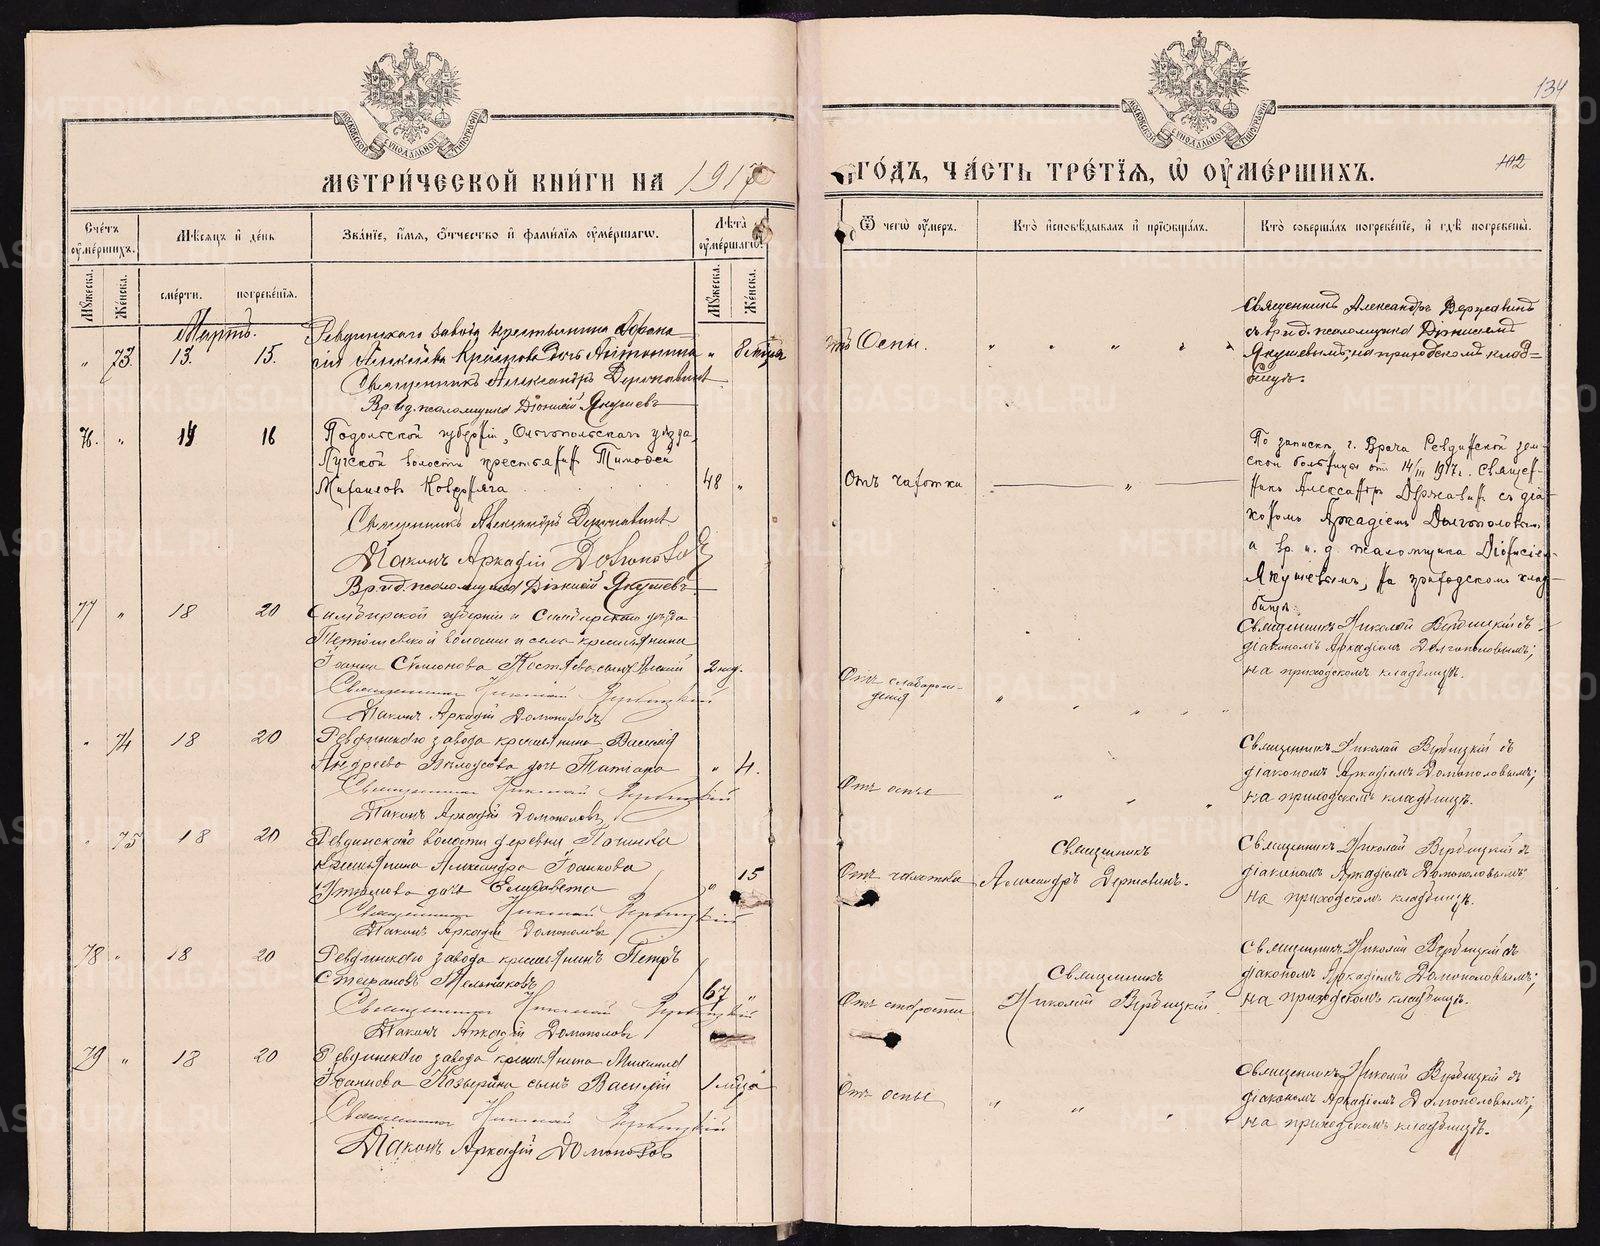 МЕТРИ́ЧЕСКОЙ КНИ́ГИ НА 1917
ГО́ДЪ, ЧА́СТЬ ТРЕ́ТЇѦ, Ѡ҆ ОУ҆МЕ́РШИХЪ.
134
Сче́тъ оу҆ме́ршихъ.
Мѣ́сяцъ и҆ де́нь
Зва́нїе, и҆́мѧ, ѻ҆́тчество и҆ фами́лїѧ оу҆ме́ршагѡ.
Лѣ́та оу҆ме́ршагѡ.
Ѿ чегѡ̀ оу҆́меръ.
Кто̀ и҆сповѣ́дывалъ и҆ прїѡбща́лъ.
Кто̀ соверша́лъ погребе́нїе, и҆ гдѣ̀ погребены̀.
Мꙋ́жеска.
Же́нска.
сме́рти.
погребе́нїѧ.
Мꙋ́жеска.
Же́нска.
Мартъ.
" 73. 13. 15.
Ревдинскаго завода крестьянина
дочь Антонина
Священникъ Александръ Державинъ
Вр.и.д. псаломщика Діонисій Якушевъ
Оспы.
Священникъ Александръ Державинъ
съ вр.и.д. псаломщика Діонисіемъ
Якушевымъ, на приходскомъ клад-
бищѣ.
76. " 14 16
Подольской губерніи, Ольгопольскаго уѣзда,
волости крестьянинъ Тимофей
Михаиловъ
48 "
Священникъ Александръ Державинъ
Діаконъ Аркадій Долгополовъ
Вр.и.д. псаломщика Діонисій Якушевъ
Отъ чахотки
По запискѣ г. Врача Ревдинской зем-
ской больницы отъ 14/III 1917 г. Священ-
никъ Александръ Державинъ съ діа-
кономъ Аркадіемъ Долгополовымъ
и вр. и. д. псаломщика Діонисіемъ
Якушевымъ, на приходскомъ клад-
бищѣ.
77 " 18 20
Симбирской губерніи и Симбирскаго уѣзда
волости и села крестьянина
Іоанна Симеонова сынъ
2 нед.
Священникъ Николай Вербицкій
Діаконъ Аркадій Долгополовъ
Отъ слаборож-
денія
Священникъ Николай Вербицкій съ
діакономъ Аркадіемъ Долгополовымъ;
на приходскомъ кладбищѣ.
" 74 18 20
Ревдинскаго завода крестьянина Василія
Андреева дочь Татіана
" 4.
Священникъ Николай Вербицкій
Діаконъ Аркадій Долгополовъ
Отъ оспы
Священникъ Николай Вербицкій съ
діакономъ Аркадіемъ Долгополовымъ;
на приходскомъ кладбищѣ.
" 75 18 20
Ревдинской волости деревни
крестьянина Александра Іоаннова
дочь Елисавета
" 15
Священникъ Николай Вербицкій
Діаконъ Аркадій Долгополовъ
Отъ чахотки
Священникъ
Александръ Державинъ.
Священникъ Николай Вербицкій съ
діакономъ Аркадіемъ Долгополовымъ;
на приходскомъ кладбищѣ.
78 " 18 20
Ревдинскаго завода крестьянинъ Петръ
Стефановъ Мельниковъ
67 "
Священникъ Николай Вербицкій
Діаконъ Аркадій Долгополовъ
Отъ старости
Священникъ
Николай Вербицкій
Священникъ Николай Вербицкій съ
діакономъ Аркадіемъ Долгополовымъ;
на приходскомъ кладбищѣ.
79 " 18 20
Ревдинскаго завода крестьянина Михаила
Іоаннова Козырина сынъ Василій
Священникъ Николай Вербицкій
Діаконъ Аркадій Долгополовъ
Отъ оспы
Священникъ Николай Вербицкій съ
діакономъ Аркадіемъ Долгополовымъ;
на приходскомъ кладбищѣ.